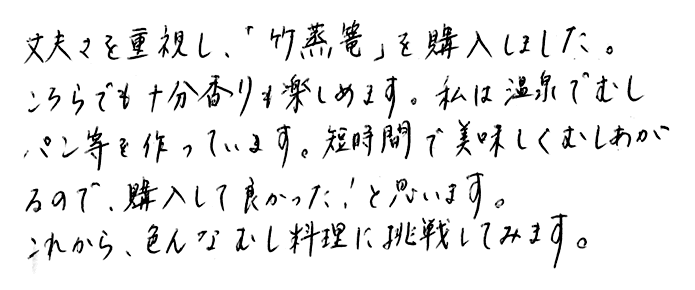 丈夫さを重視し、「竹蒸篭」を購入しました。
こちらでも十分香りも楽しめます。私は温泉でむし
パン等を作っています。短時間で美味しくむしあが
るので、購入して良かった!と思います。
これから、色んなむし料理に挑戦してみます。